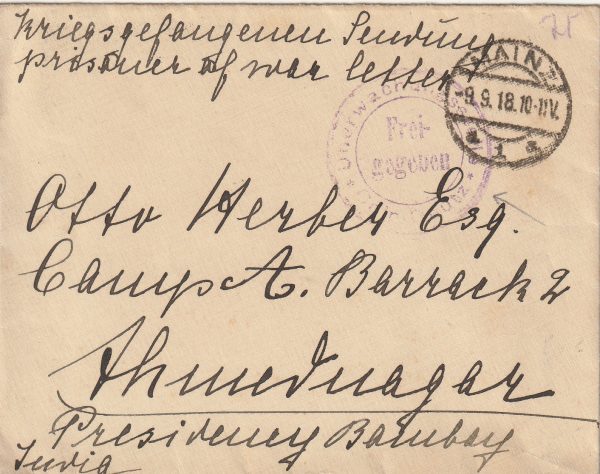 Kriegsgefangenen Sendung
prisoner of war letter
75
MAINZ
-9.9.18.10-11V.
* 1 a
Frei-
gegeben
Otto Herber Esq.
Camp A. Barrack 2
Ahmednagar
Presidency Bombay
India